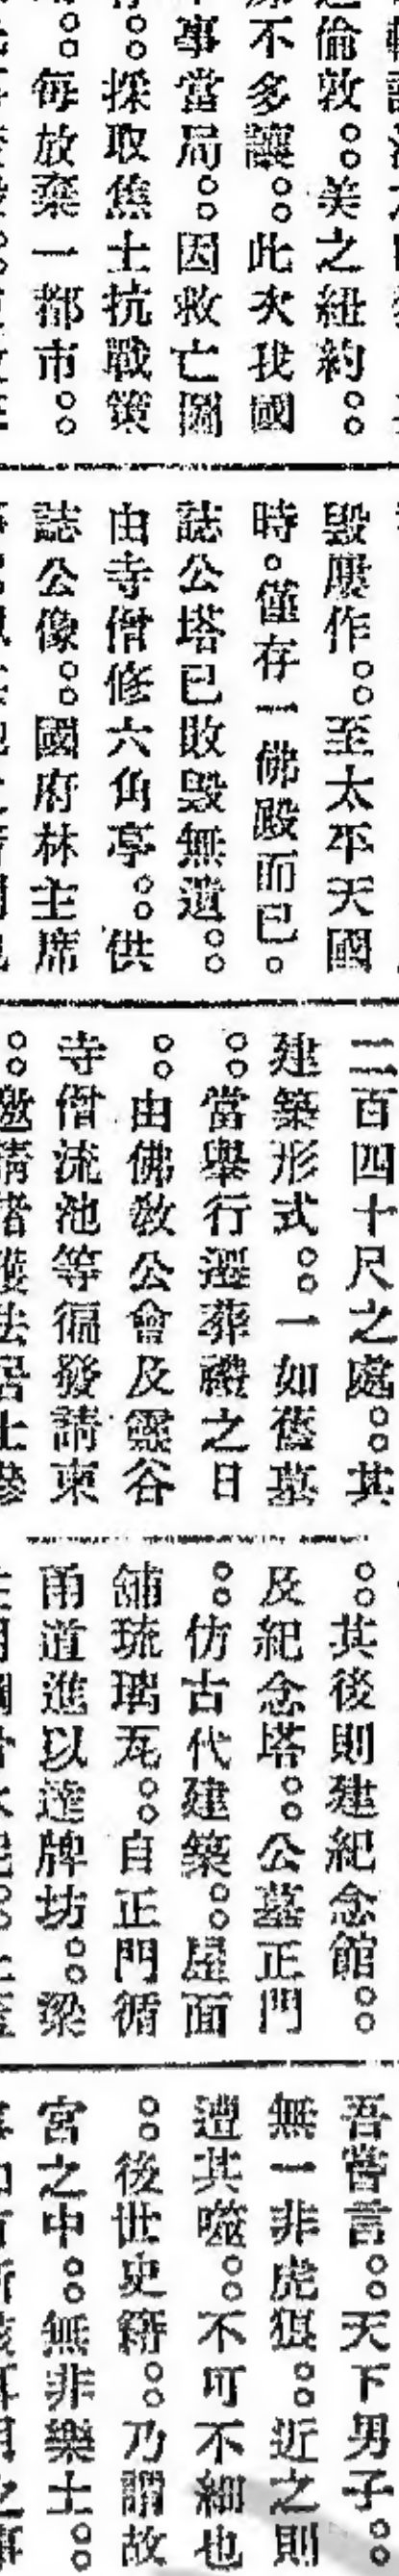 倫敦。。美之紐約。。
不多讓。。此次我國
事當局。。因救亡圖
。。採取焦土抗戰策
。。每放棄一都市。。
毀屢作。。至太平天國
時。僅存一佛殿而已。
誌公塔已敗毀無遺。。
由寺僧修六角亭。。供
誌公像。。國府林主席
二百四十尺之處。。其
建築形式。。一如舊墓
。。當舉行遷葬禮之日
。。由佛教公會及靈谷
寺僧流池等徧發請柬
。。邀請諸護法居士參
。。其後則建紀念館。。
及紀念塔。。公墓正門
。。仿古代建築。。屋面
舖琉璃瓦。。自正門循
甬道進以達牌坊。。梁
吾嘗言。。天下男子。。
無一非虎狼。。近之則
遭其噬。。不可不細也
。。後世史籍。。乃謂故
宮之中。。無非樂土。。